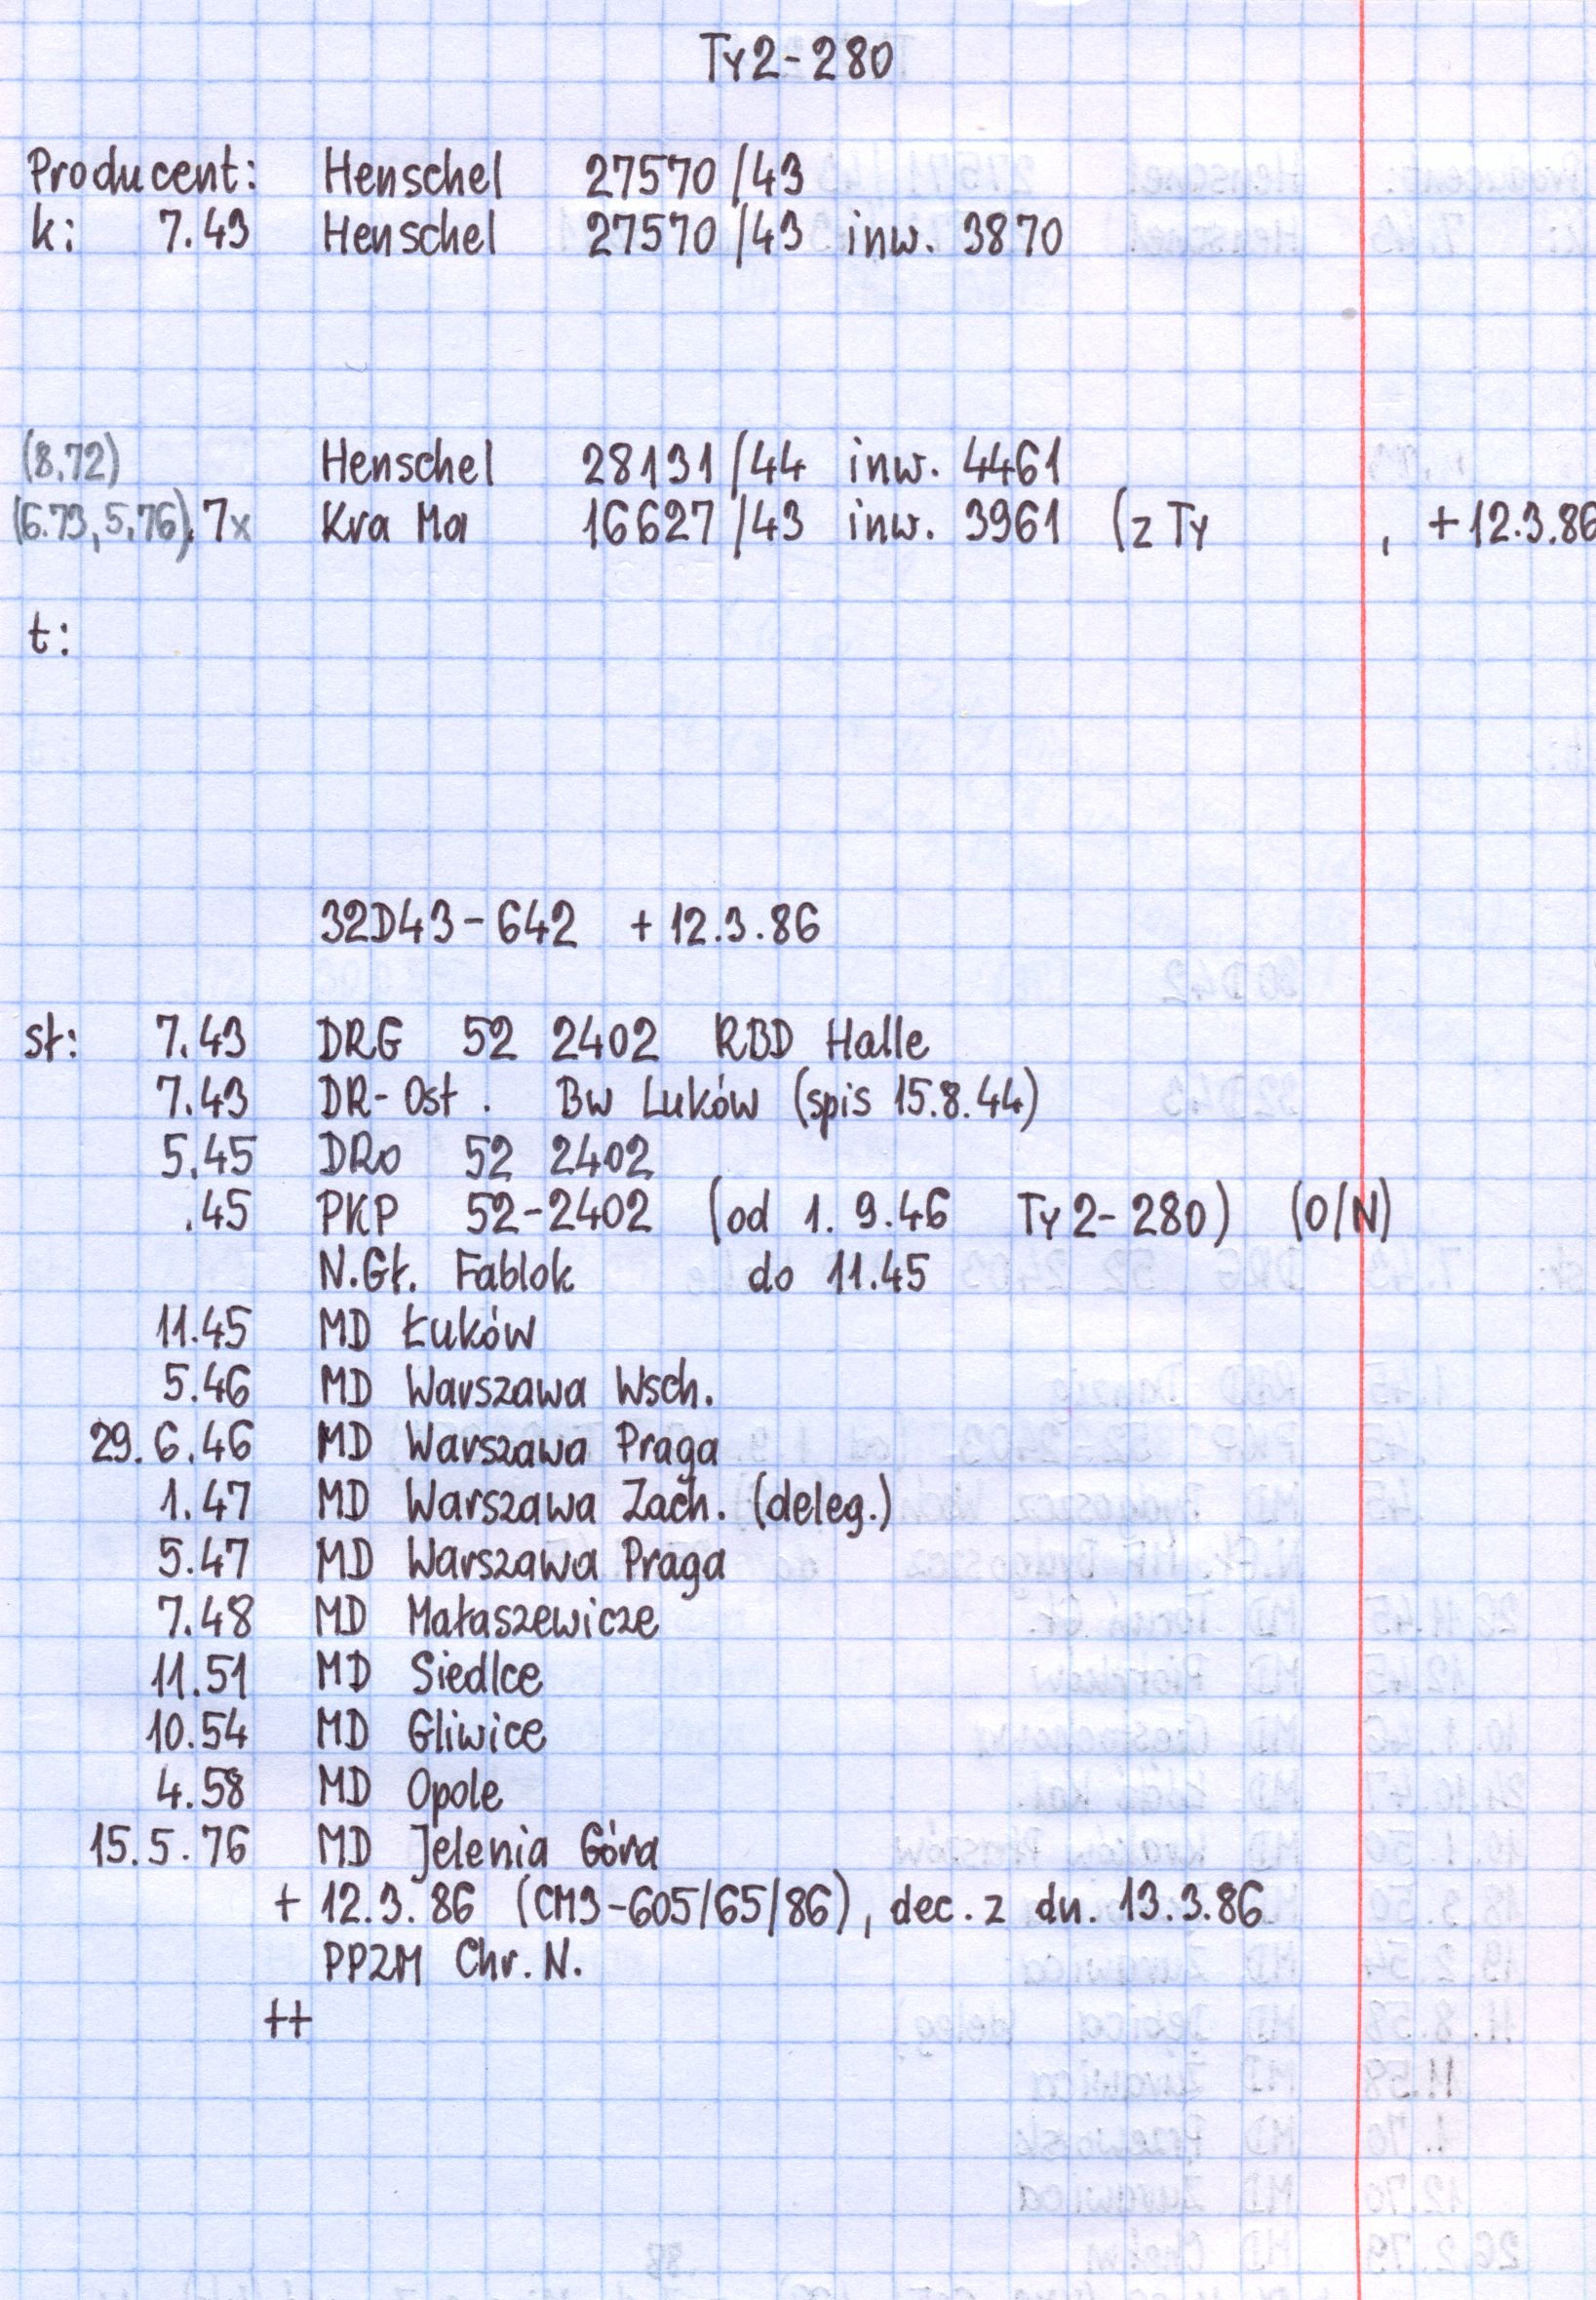 Ty2-280
Producent: Henschel 27570/43
k: 7.43 Henschel 27570/43 inw. 3870
(8.72) Henschel 28131/44 inw. 4461
(6.73, 5.76), 7x Kra Ma 16627/43 inw. 3961 (z Ty , +12.3.86
t:
32D43-642 +12.3.86
st: 7.43 DRG 52 2402 RBD Halle
7.43 DR-Ost. Bw Luków (spis 15.8.44)
5.45 DRo 52 2402
.45 PKP 52-2402 (od 1.9.46 Ty2-280) (O/N)
N.Gł. Fablok do 11.45
11.45 MD Łuków
5.46 MD Warszawa Wsch.
29.6.46 MD Warszawa Praga
1.47 MD Warszawa Zach. (deleg.)
5.47 MD Warszawa Praga
7.48 MD Małaszewicze
11.51 MD Siedlce
10.54 MD Gliwice
4.58 MD Opole
15.5.76 MD Jelenia Góra
+ 12.3.86 (CM3-605/65/86), dec. z dn. 13.3.86
PPZM Chr. N.
++